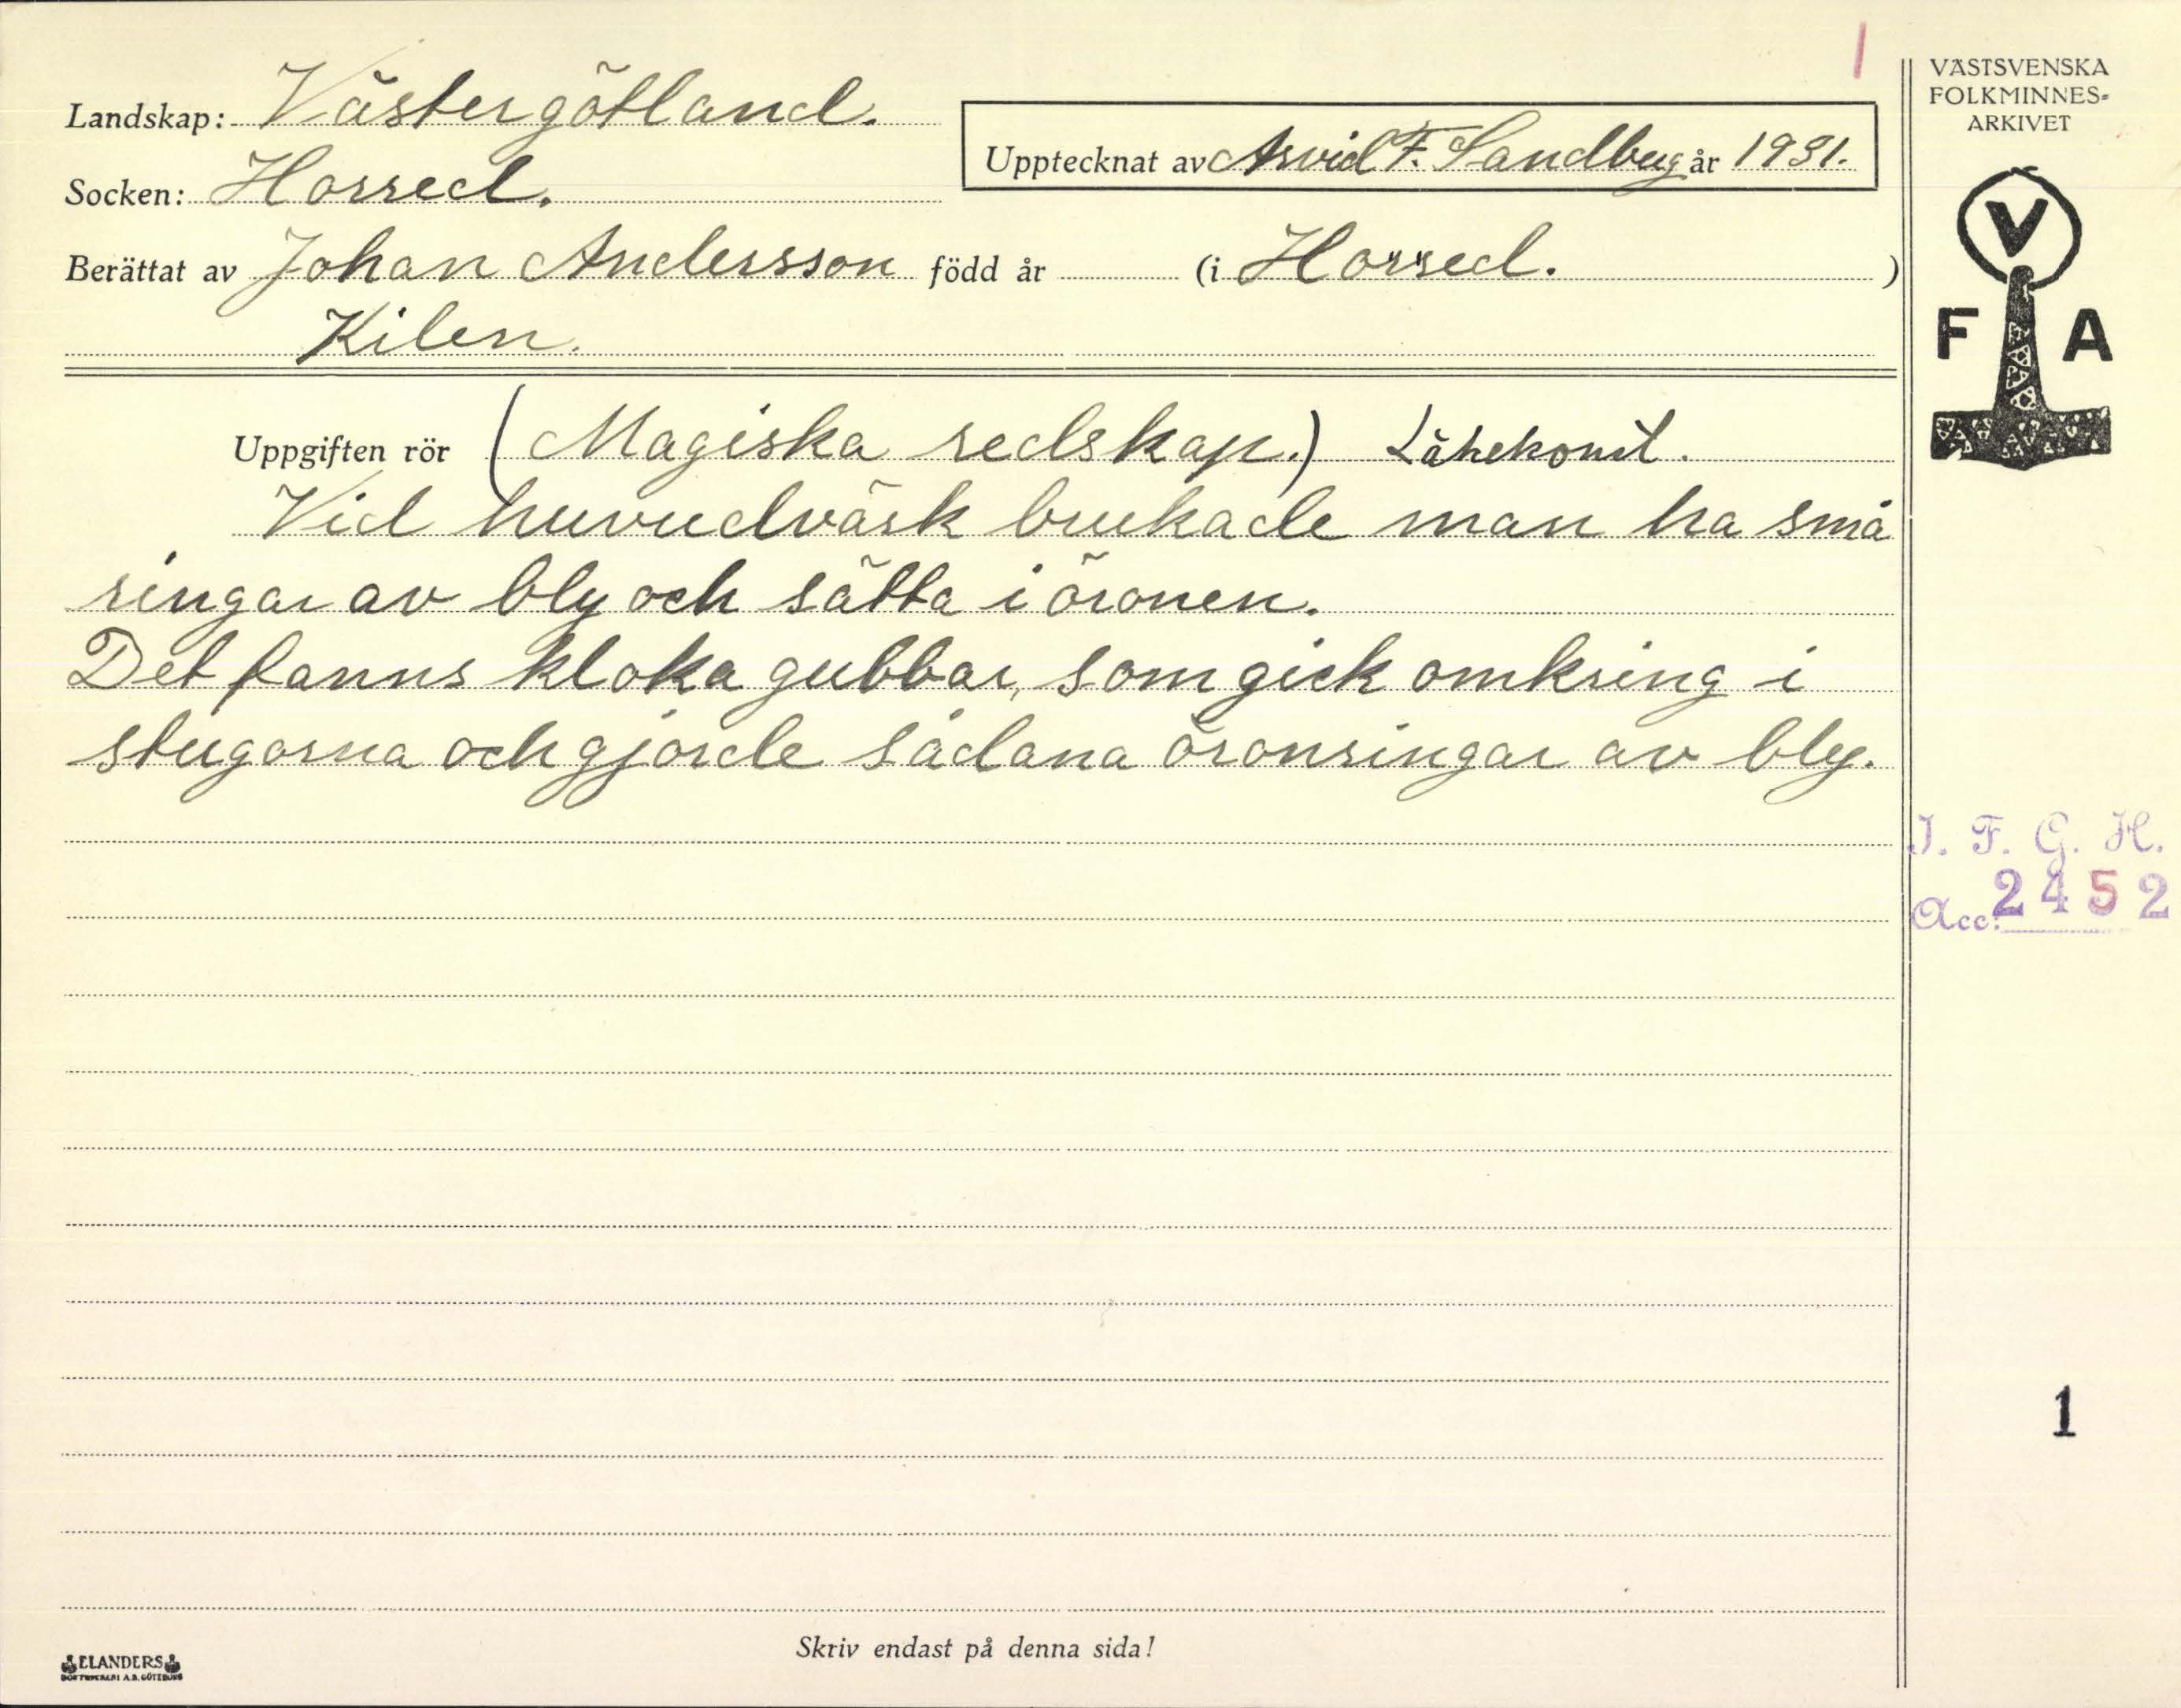 Landskap: Västergötland.
Socken: Horred.
Upptecknat av Arvid F. Sandberg år 1931.
Berättat av Johan Andersson född år (i Horred. )
Kilen.
Uppgiften rör (Magiska redskap.) Läkekonst.
Vid huvudvärk brukade man ha små
ringar av bly och sätta i öronen.
Det fanns kloka gubbar, som gick omkring i
stugorna och gjorde sådana öronringar av bly.
Skriv endast på denna sida!
ELANDERS
BOKTRYCKERI A.B. GÖTEBORG
1
VÄSTSVENSKA
FOLKMINNES-
ARKIVET
V
F A
I. F. G. H.
Acc. 2452
1